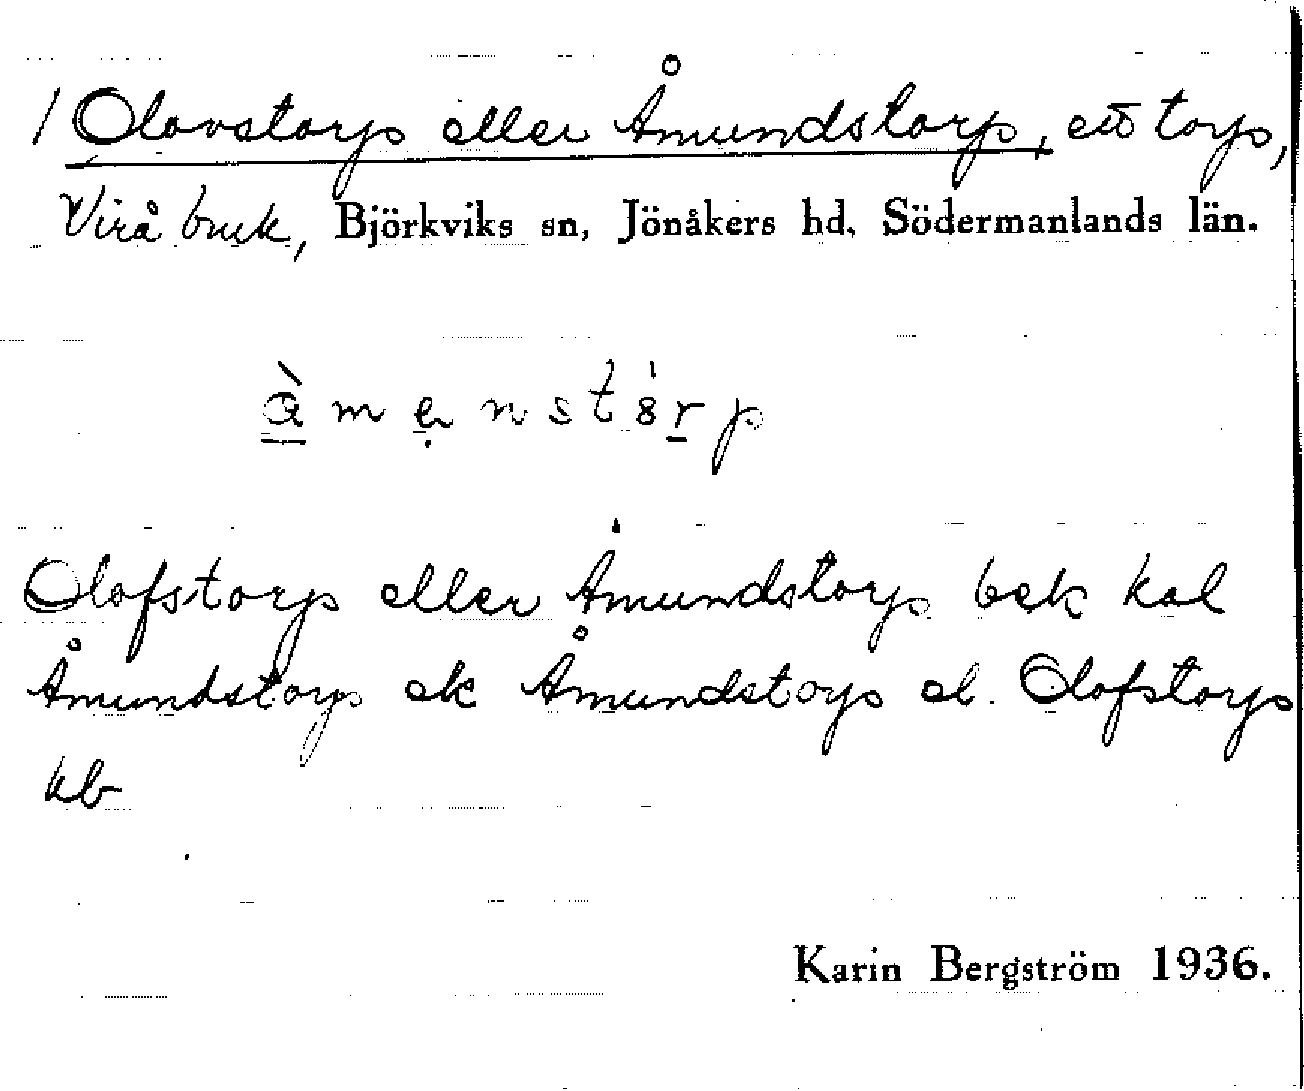 1 Olovstorp eller Åmundstorp, ett torp,
Virå bruk, Björkviks sn, Jönåkers hd, Södermanlands län.
Olofstorp eller Åmundstorp bek kal
Åmundstorp ek Åmundstorp el. Olofstorp
kb
Karin Bergström 1936.